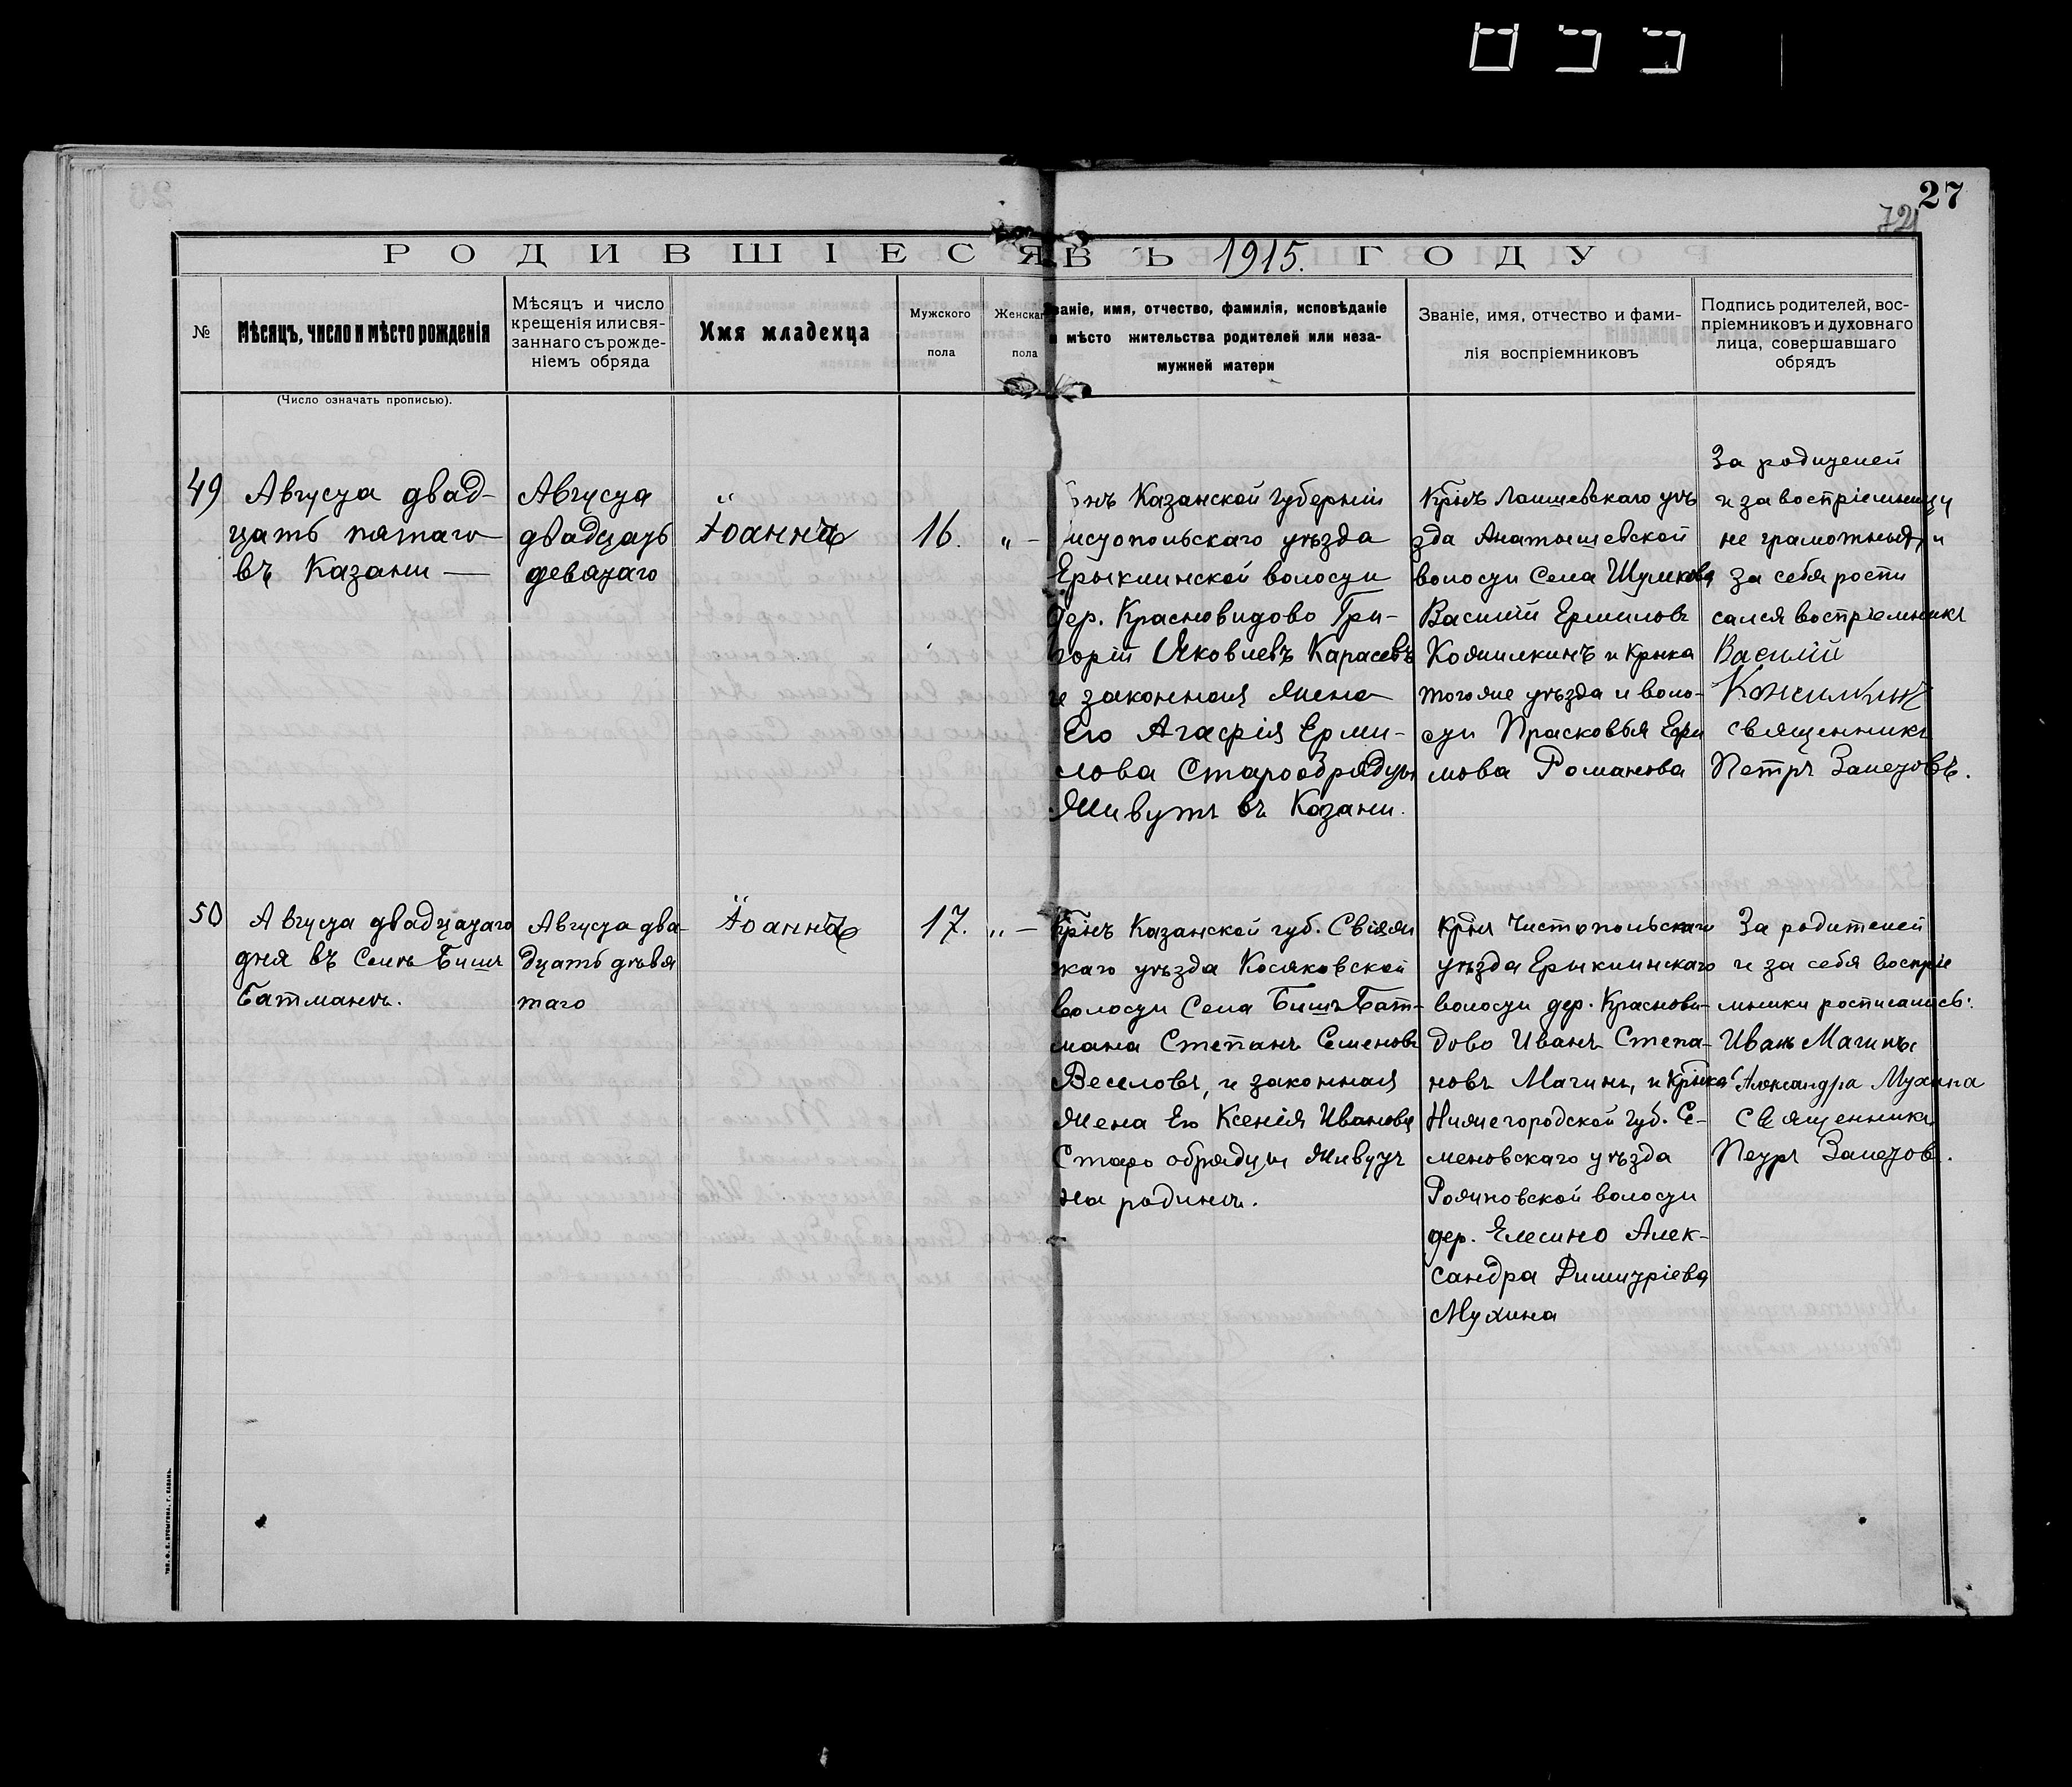 27
72
РОДИВШІЕСЯ ВЪ 1915. ГОДУ
№
Мѣсяцъ, число и мѣсто рожденія
Мѣсяцъ и число
крещенія или свя-
заннаго съ рожде-
ніемъ обряда
Имя младенца
Мужского
пола
Женскаго
пола
Званіе, имя, отчество, фамилія, исповѣданіе
и мѣсто жительства родителей или неза-
мужней матери
Званіе, имя, отчество и фами-
лія воспріемниковъ
Подпись родителей, вос-
пріемниковъ и духовнаго
лица, совершавшаго
обрядъ
(Число означать прописью).
49
Августа двад-
цать пятаго
въ Казани —
Августа
двадцать
девятаго
Іоаннъ
16.
„ -
Казанской губерніи
истопольскаго уѣзда
Ерыклинской волости
дер. Красновидово Гри-
горій Яковлевъ Карасевъ
и законная жена
Его Агафія Ерми-
лова Старообрядцы
Живутъ въ Казани.
Крнъ Лаишевскаго уѣ
зда Анатышевской
волости Села Шумкова
Василій Ермиловъ
Кожилкинъ и Крнка
тогоже уѣзда и воло-
сти Прасковья Ефи
мова Романова
За родителей
и за воспріемницу
не грамотныхъ и
за себя роспи
сался воспріемникъ
Василій
Кожилкинъ
священникъ
Петръ Залетовъ.
50
Августа двадцатаго
дня въ Селѣ Бишъ
Батманѣ.
Августа два-
дцать дѣвя
таго
Іоаннъ
17.
„ —
Крнъ Казанской губ. Свіяж
скаго уѣзда Косяковской
волости Села Бишъ Бат-
мана Степанъ Семеновъ
Веселовъ, и законная
Жена Его Ксенія Иванова
Старообрядцы Живутъ
на родинѣ.
Крнъ Чистопольскаго
уѣзда Ерыклинскаго
волости дер. Краснови-
дово Иванъ Степа-
новъ Магинъ, и Крнка
Нижегородской губ. Се-
меновскаго уѣзда
Рожновской волости
дер. Елесино Алек-
сандра Димитріева
Мухина
За родителей
и за себя воспріе
мники росписались:
Иванъ Магинъ
Александра Мухина
Священникъ
Петръ Залетов.